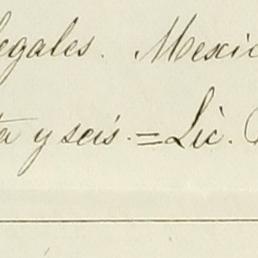 legales. Mexic
ta y seis. = Lic.